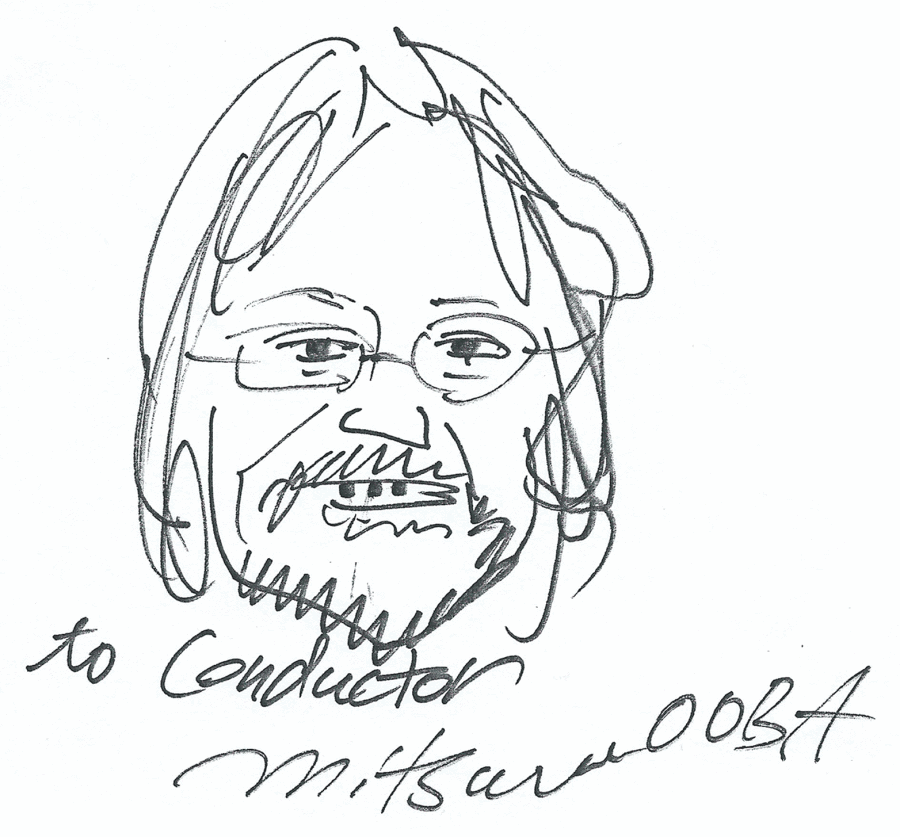 to Conductor
Mitsaru OOBA